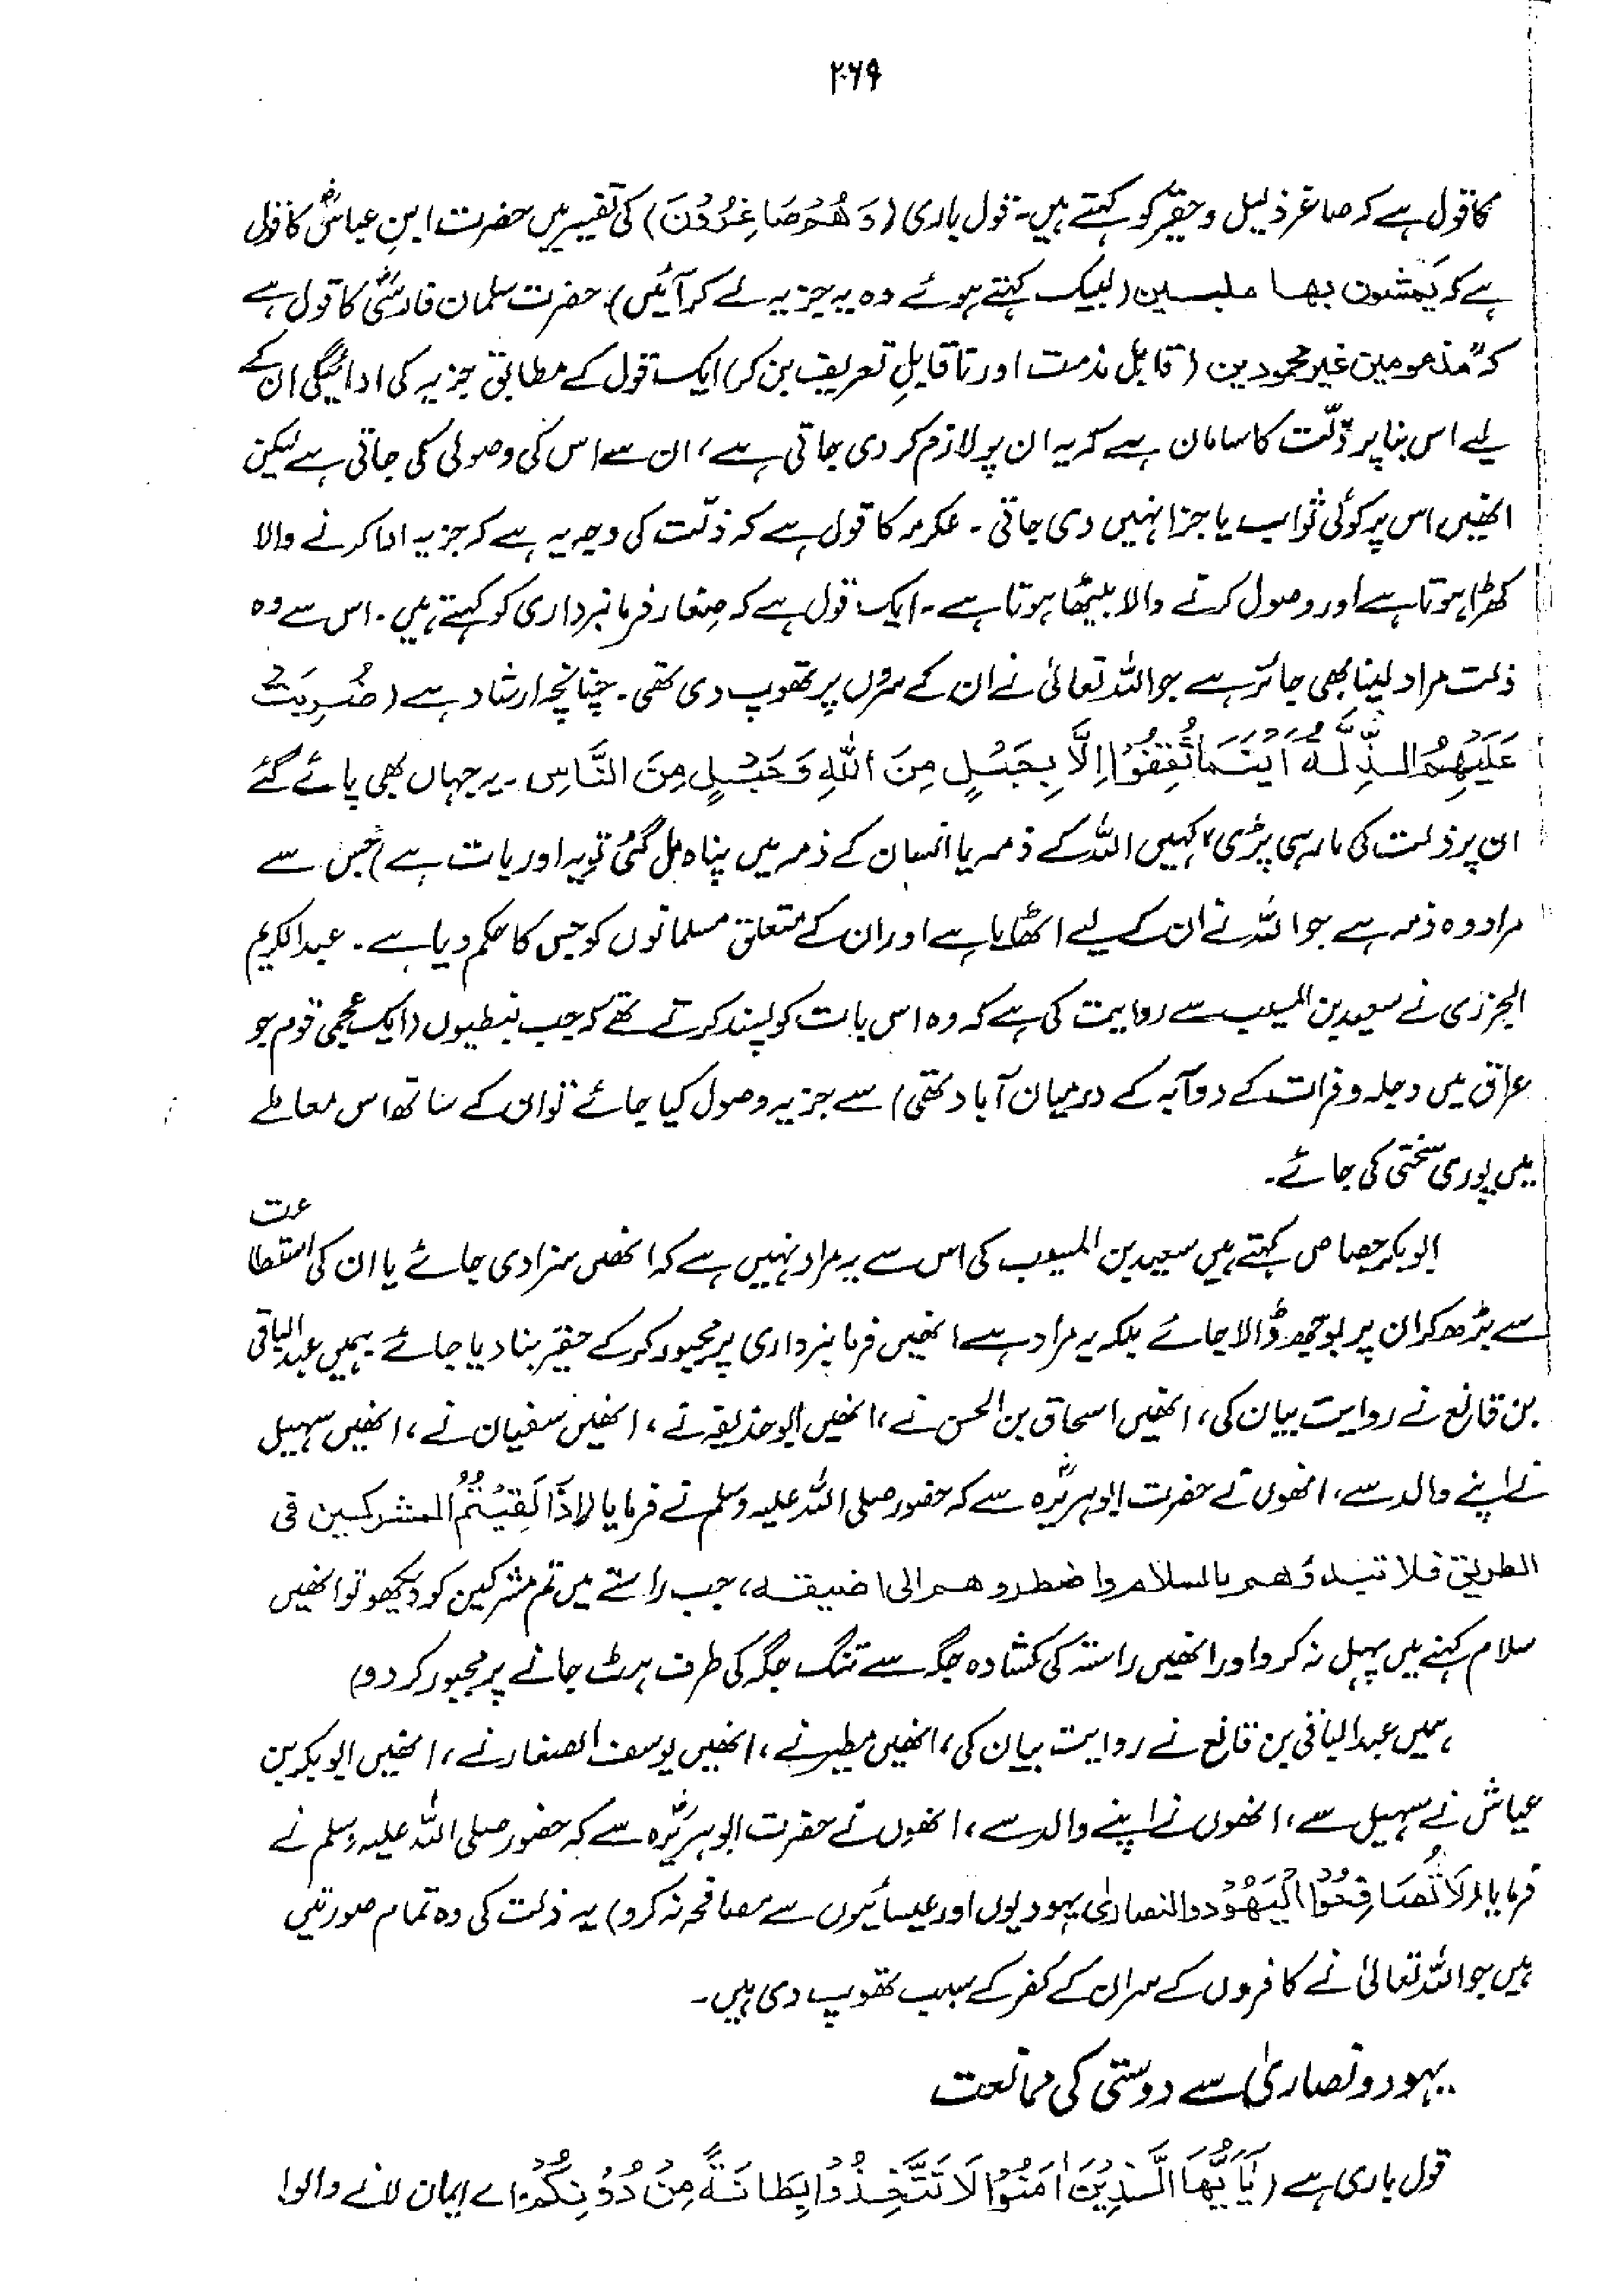 ۲۶۹
کا قول ہے کہ صاغر ذلیل و حقیر کو کہتے ہیں۔ قول باری (وَهُمْ صَاغِرُوْنَ) کی تفسیر میں حضرت ابن عباسؓ کا قول
ہے کہ یَمشون بھا ملبیین (لبیک کہتے ہوئے وہ یہ جزیہ لے کر آئیں) حضرت سلمان فارسیؓ کا قول ہے
کہ "مذمومین غیر محمودین (قابلِ مذمت اور نا قابلِ تعریف بن کر) ایک قول کے مطابق جزیہ کی ادائیگی ان کے
لیے اس بنا پر ذلّت کا سامان ہے کہ یہ ان پر لازم کر دی جاتی ہے، ان سے اس کی وصولی کی جاتی ہے لیکن
انھیں اس پر کوئی ثواب یا جزا نہیں دی جاتی۔ عکرمہ کا قول ہے کہ ذلّت کی وجہ یہ ہے کہ جزیہ ادا کرنے والا
کھڑا ہوتا ہے اور وصول کرنے والا بیٹھا ہوتا ہے۔ ایک قول ہے کہ صغار فرمانبرداری کو کہتے ہیں۔ اس سے وہ
ذلت مراد لینا بھی جائز ہے جو اللہ تعالیٰ نے ان کے سروں پر تھوپ دی تھی۔ چنانچہ ارشاد ہے (ضُرِبَتْ
عَلَيْهِمُ الذِّلَّةُ اَيْنَمَا ثُقِفُوْا اِلَّا بِحَبْلٍ مِنَ اللهِ وَحَبْلٍ مِنَ النَّاسِ۔ یہ جہاں بھی پائے گئے
ان پر ذلت کی مار ہی پڑی، کہیں اللہ کے ذمہ یا انسان کے ذمہ میں پناہ مل گئی تو یہ اور بات ہے) جس سے
مراد وہ ذمہ ہے جو اللہ نے ان کے لیے اٹھایا ہے اور ان کے متعلق مسلمانوں کو جس کا حکم دیا ہے۔ عبدالکریم
الجزری نے سعید بن المسیب سے روایت کی ہے کہ وہ اس بات کو پسند کرتے تھے کہ جب نبطیوں (ایک عجمی قوم جو
عراق میں دجلہ و فرات کے دوآبہ کے درمیان آباد تھی) سے جزیہ وصول کیا جائے تو ان کے ساتھ اس معاملے
میں پوری سختی کی جائے۔
ابو بکر جصاص کہتے ہیں سعید بن المسیب کی اس سے یہ مراد نہیں ہے کہ انھیں سزا دی جائے یا ان کی استطاعت
سے بڑھ کر ان پر بوجھ ڈالا جائے بلکہ یہ مراد ہے انھیں فرمانبرداری پر مجبور کر کے حقیر بنا دیا جائے ہمیں عبدالباقی
بن قانع نے روایت بیان کی، انھیں اسحاق بن الحسن نے، انھیں ابو حذیفہ نے، انھیں سفیان نے، انھیں سہیل
نے اپنے والد سے، انھوں نے حضرت ابو ہریرہؓ سے کہ حضور صلی اللہ علیہ وسلم نے فرمایا (اِذَا لَقِيْتُمُ المشرکین فی
الطریق فلا تبدؤھم بالسلام واضطروھم الی اضیقہ، جب راستے میں تم مشرکین کو دیکھو تو انھیں
سلام کہنے میں پہل نہ کرو اور انھیں راستہ کی کشادہ جگہ سے تنگ جگہ کی طرف ہٹ جانے پر مجبور کر دو)
ہمیں عبدالباقی بن قانع نے روایت بیان کی، انھیں مطیر نے، انھیں یوسف الصفار نے، انھیں ابو بکر بن
عیاش نے سہیل سے، انھوں نے اپنے والد سے، انھوں نے حضرت ابو ہریرہؓ سے کہ حضور صلی اللہ علیہ وسلم نے
فرمایا (لَا تُصَافِحُوْا الْيَهُوْدَ والنصاریٰ یہودیوں اور عیسائیوں سے مصافحہ نہ کرو) یہ ذلت کی وہ تمام صورتیں
ہیں جو اللہ تعالیٰ نے کافروں کے سر ان کے کفر کے سبب تھوپ دی ہیں۔
یہود و نصاریٰ سے دوستی کی ممانعت
قول باری ہے (يٰٓاَيُّهَا الَّذِيْنَ اٰمَنُوْا لَا تَتَّخِذُوْا بِطَانَةً مِنْ دُوْنِكُمْ اے ایمان لانے والو!